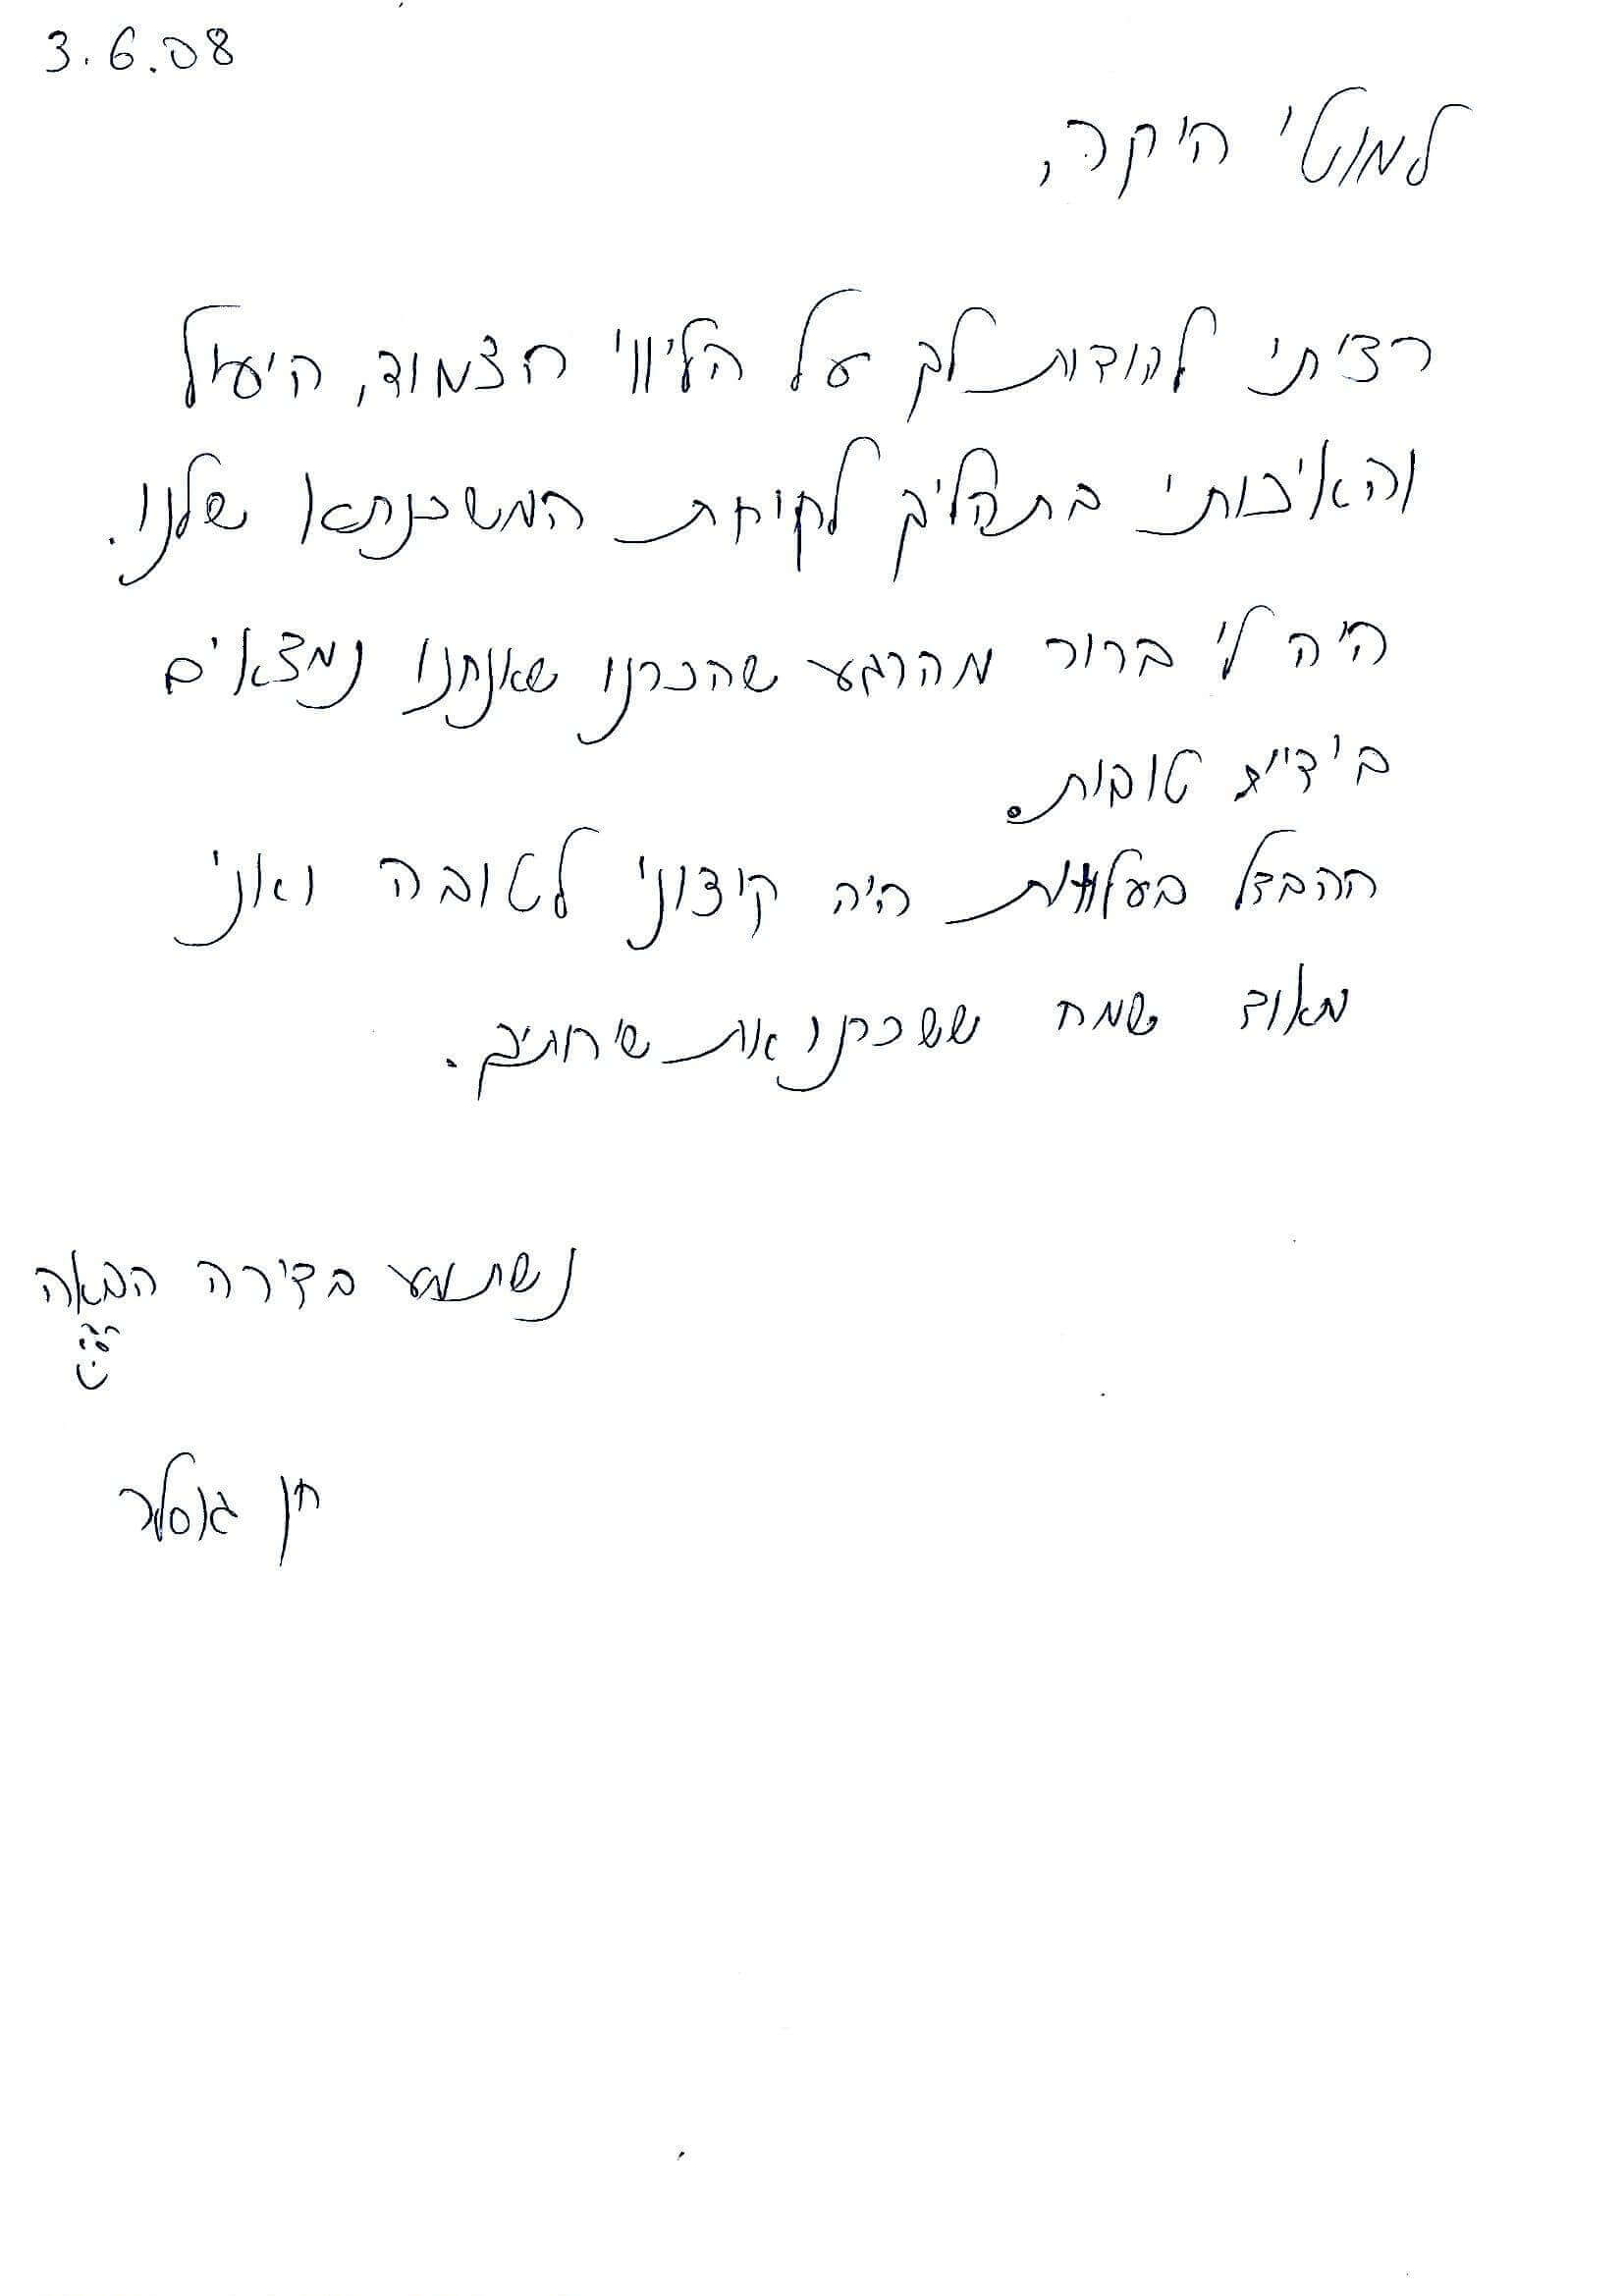 3.6.08
למוטי היקר,
רציתי להודות לך על הליווי הצמוד, היעיל
והאיכותי בתהליך לקיחת המשכנתא שלנו.
היה לי ברור מהרגע שהכרנו שאנחנו נמצאים
בידיים טובות.
ההבדל בעלויות היה קיצוני לטובה ואני
מאוד שמח ששכרנו את שירותיך.
נשתמע בדירה הבאה
חן גוסלר